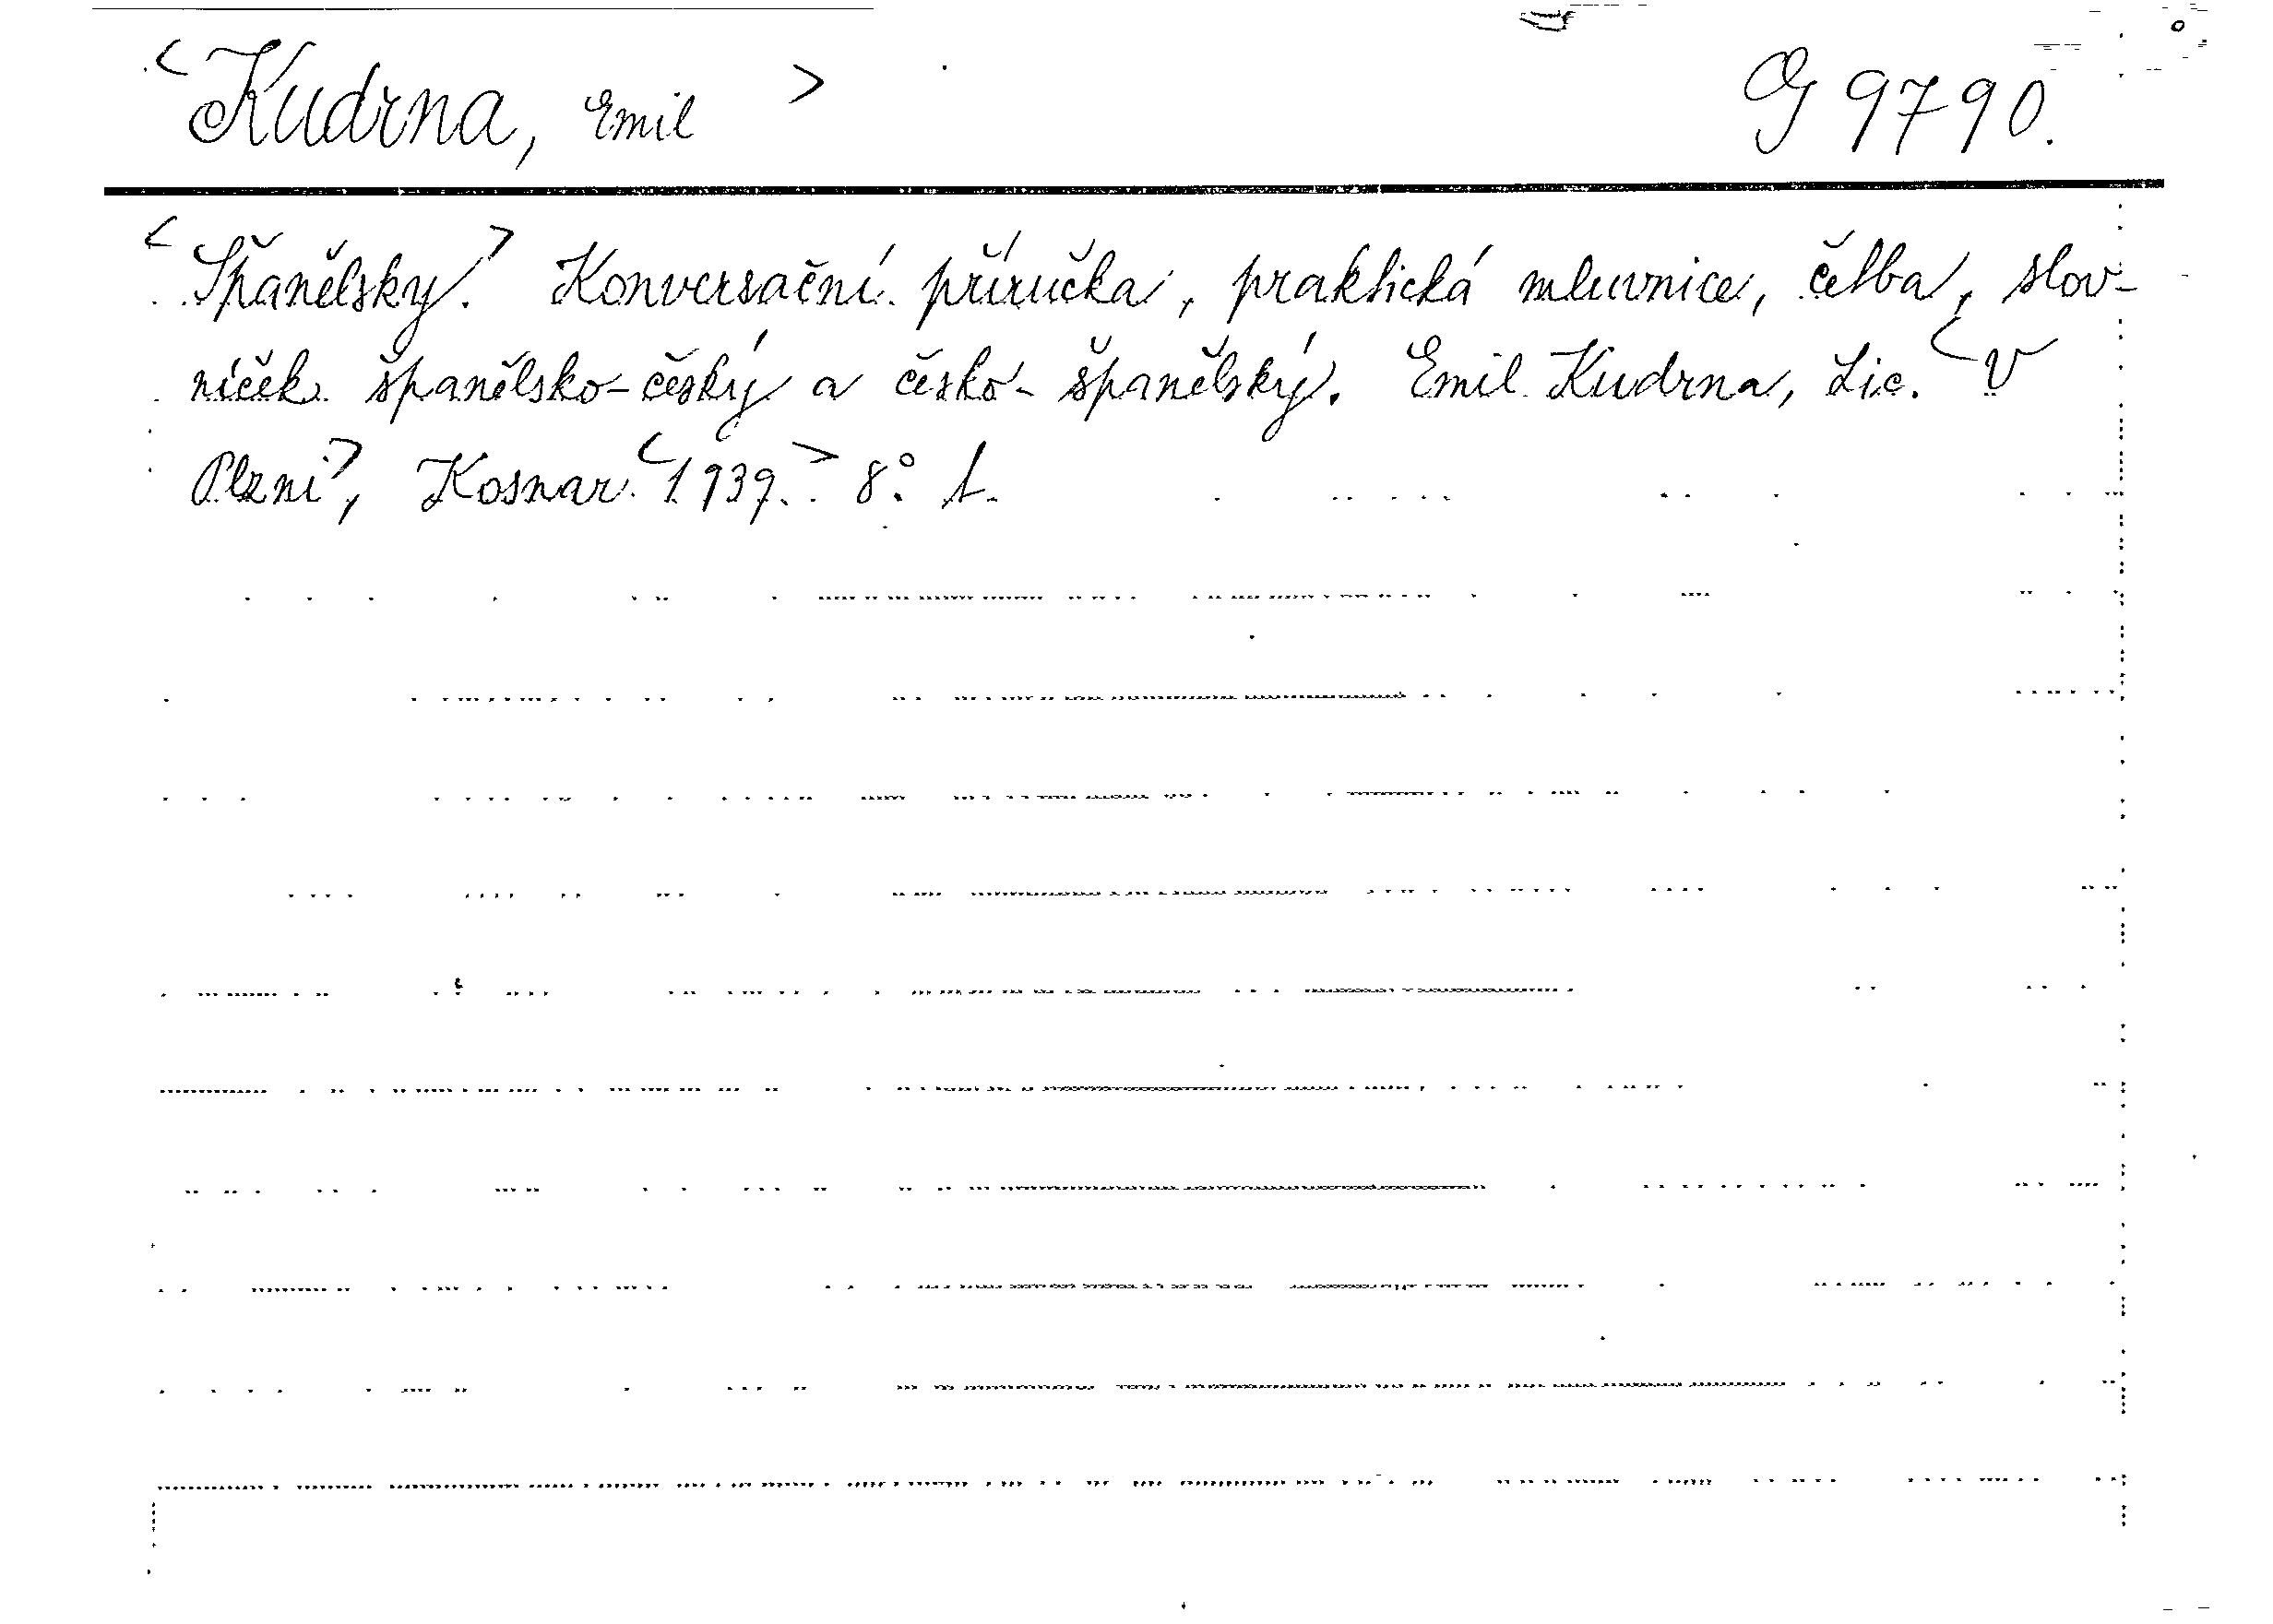 <Kudrna, Emil> G 9790.
<Španělsky.> Konversační příručka, praktická mluvnice, četba, slov-
níček španělsko-český a česko-španělský. Emil Kudrna, Lic. <V
Plzni>, Kosnar. <1939.> 8°. 1.